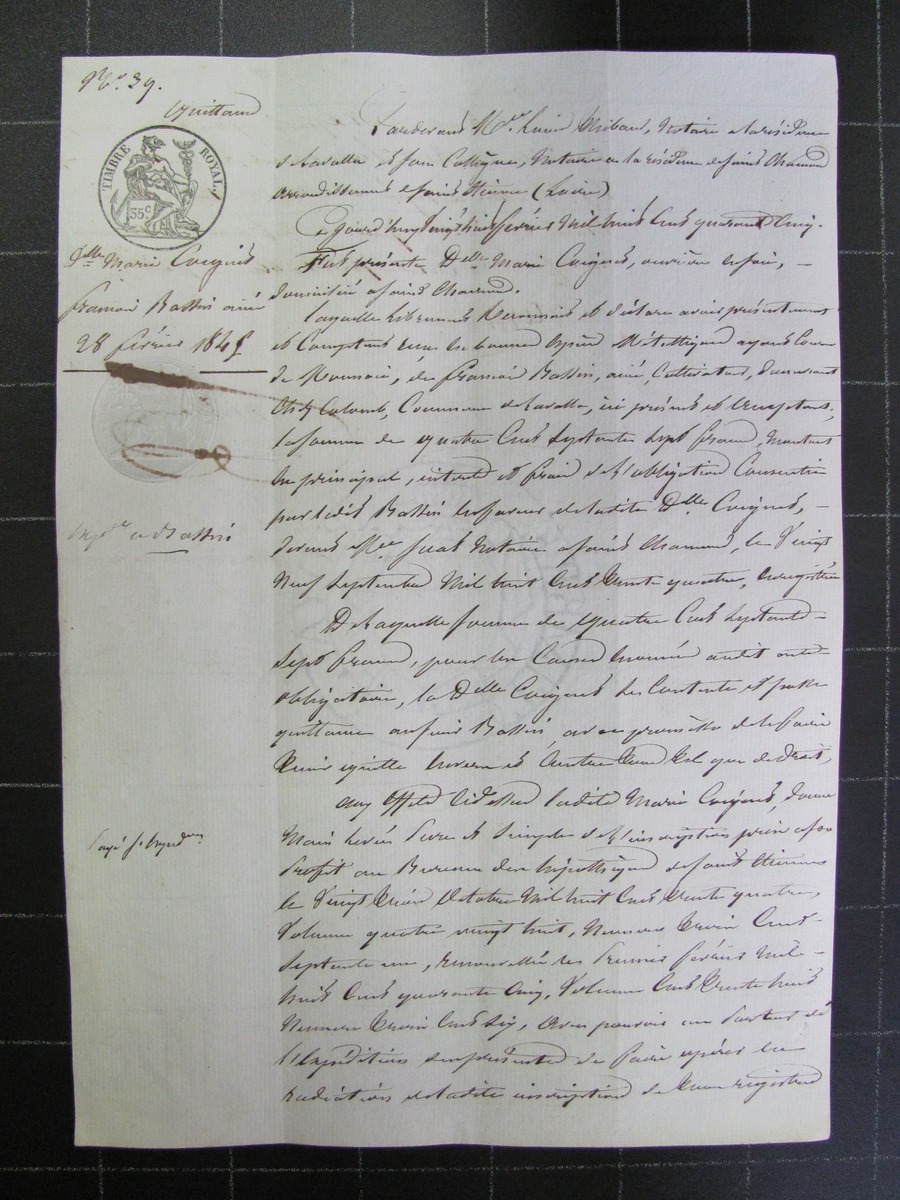 No. 39.
Quittance
TIMBRE ROYAL
35 c
Dlle Marie Coignet
François Bassin ainé
28 février 1845
Expon a Bassin
Payé f. 
Pardevant Mtres Louis Thibaud, Notaire à la résidence
de Lavalla et Jean Notaire en la résidence de Saint Chamond
arrondissement de Saint Etienne (Loire)
Ce jourd'huy vingt huit février Mil huit Cent quarante Cinq.
Fut présente Dlle Marie Coignet, ouvrière en soie, –
domiciliée à Saint Chamond.
Laquelle librement Reconnait et déclare avoir présentement
et Comptant reçu en bonnes espèces Métalliques ayant Cours
de Monnaie, de François Bassin, ainé, Cultivateur, demeurant
Chez Colomb, Commune de Lavalla, ici présent et acceptant,
la somme de quatre Cent septante sept francs, Montant
en principal, intérêts et frais de l'obligation Consentie
par ledit Bassin en faveur de ladite Dlle Coignet, –
devant Me Notaire à Saint Chamond, le Vingt
Neuf septembre Mil huit Cent trente quatre, enregistrée
De laquelle somme de quatre Cent septante –
sept francs, pour les Causes énoncées audit acte
obligatoire, la Dlle Coignet se Contente et passe
quittance au sieur Bassin avec promesse de le faire
tenir quitte envers et Contre tous tel que de droit,
Aux effets ci-dessus ladite Marie Coignet, donne
Main levée pure et simple de l'inscription prise à son
profit au Bureau des hypothèques de Saint Etienne
le Vingt trois octobre Mil huit Cent trente quatre,
Volume quatre vingt huit, Numéro trois Cent –
septante un, renouvellée les premier février Mil –
huit Cent quarante Cinq, Volume Cent trente huit
Numéro trois Cent six, avec pouvoir au porteur de
l'expédition des présentes de faire opérer la
radiation de ladite inscription de tous registres